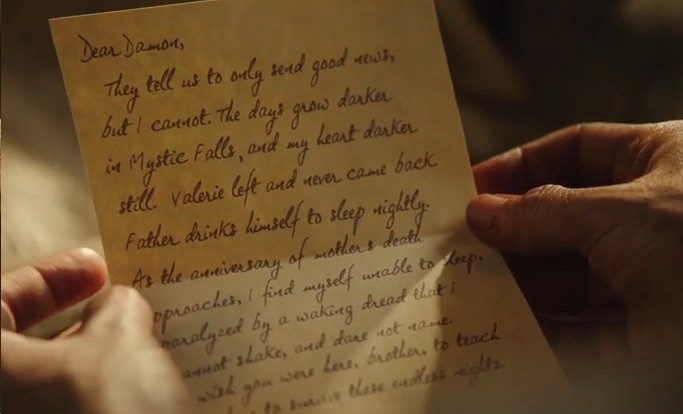 Dear Damon,
They tell us to only send good news,
but I cannot. The days grow darker
in Mystic Falls, and my heart darker
still. Valerie left and never came back
Father drinks himself to sleep nightly.
As the anniversary of mother's death
pproaches, I find myself unable to sleep,
paralyzed by a waking dread that I
annot shake, and dare not name
wish you were here, brother, to teach
to survive these endless nights